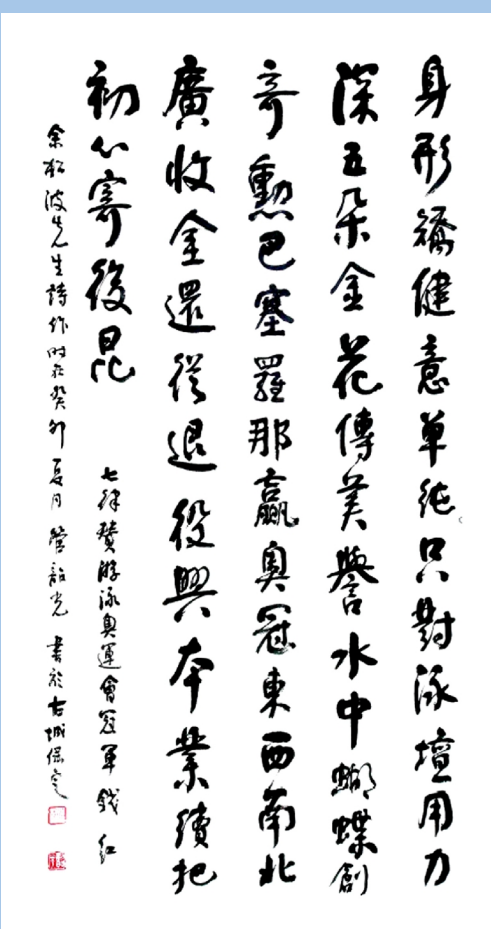 身形矯健意单純只對泳壇用力
深五朵金花傳美譽水中蝴蝶創
奇勳巴塞羅那贏奥冠東西南北
廣收金還從退役興本業續把
初心寄後昆
七律贊游泳奥運會冠軍錢红
余松波先生詩作时在癸卯夏月光書於古城保定